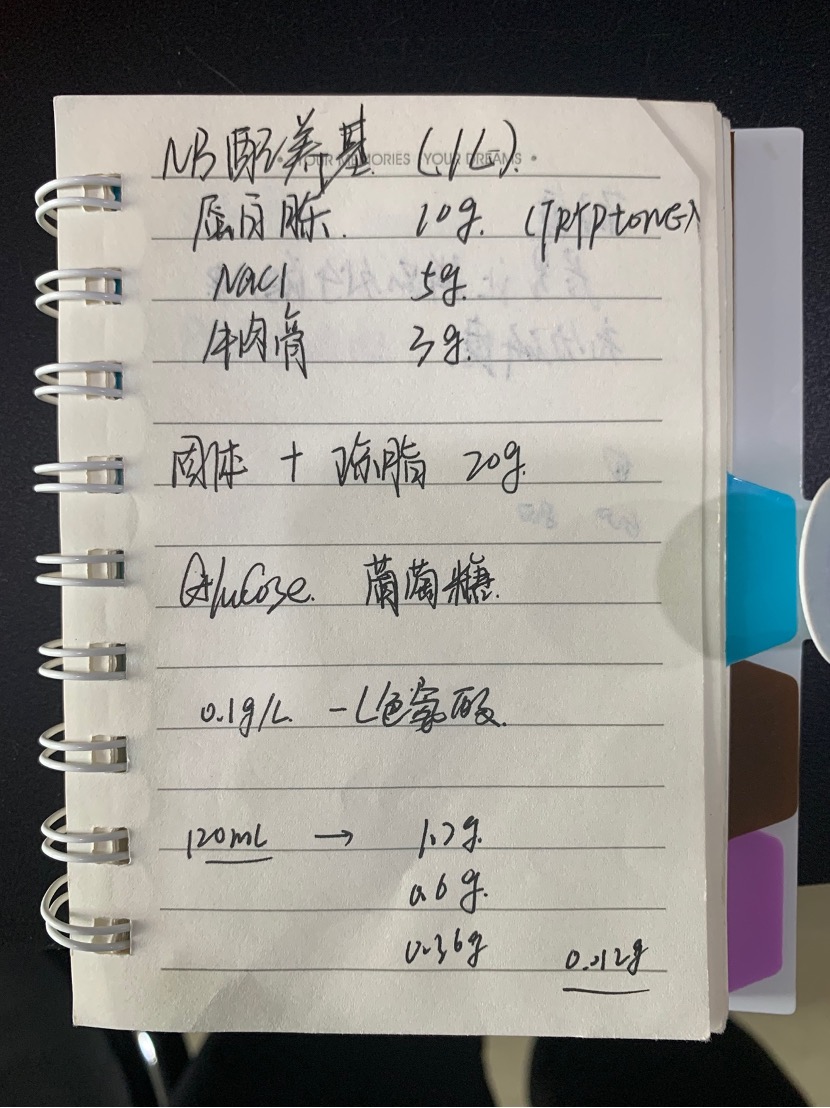 NB配养基 (1L).
YOUR MEMORIES YOUR DREAMS •
蛋白胨. 10g. (TRYPtONE)
NaCl 5g.
牛肉膏 3g.
固体 + 琼脂 20g.
Glucose. 葡萄糖.
0.1g/L. -L色氨酸.
120mL → 1.2g.
0.6g.
0.36g
0.012g